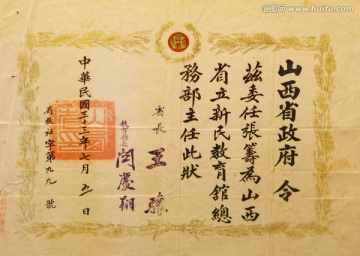 山西省政府 令
茲委任張籌為山西
省立新民教育舘總
務部主任此狀
省長 王驤
教育廳長 閆慶翔
中華民國三十三年七月五一日
字第九九號
www.huitu.com